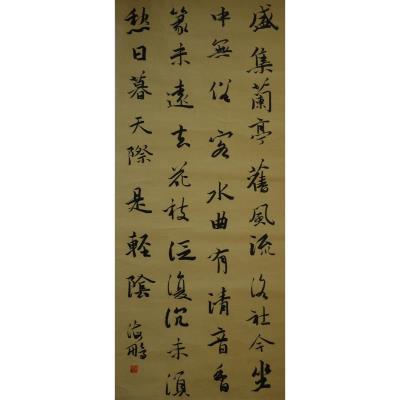 盛集蘭亭舊風流洛社今坐
中無俗客水曲有清音香
篆来還去花枝泛復沉未須
愁日暮天際是輕陰
海鵬